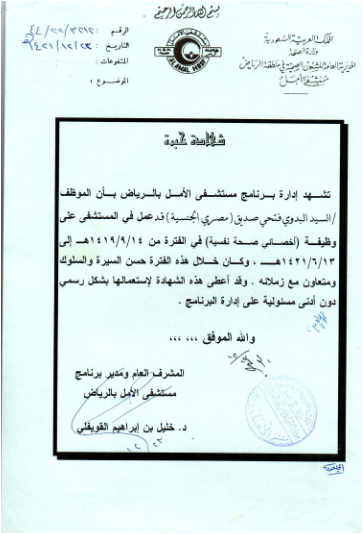 بسم الله الرحمن الرحيم
المملكة العربية السعودية
وزارة الصحة
المديرية العامة للشئون الصحية في منطقة الرياض
مستشفى الأمل
AL AMAL HOSP.
الرقم :
التاريخ : ١٤٢١/١٢/٢٣
المشفوعات :
الموضوع :
شهادة خبرة
تشهد إدارة برنامج مستشفى الأمل بالرياض بأن الموظف
/السيد البدوي فتحي صديق (مصري الجنسية) قد عمل في المستشفى على
وظيفة (أخصائي صحة نفسية) في الفترة من ١٤١٩/٩/١٤هـ إلى
١٤٢١/٦/١٣هـ ، وكان خلال هذه الفترة حسن السيرة والسلوك
ومتعاون مع زملائه . وقد أعطى هذه الشهادة لإستعمالها بشكل رسمي
دون أدنى مسئولية على إدارة البرنامج .
والله الموفق ,,, ,,,
المشرف العام ومدير برنامج
مستشفى الأمل بالرياض
د. خليل بن إبراهيم القويفلي